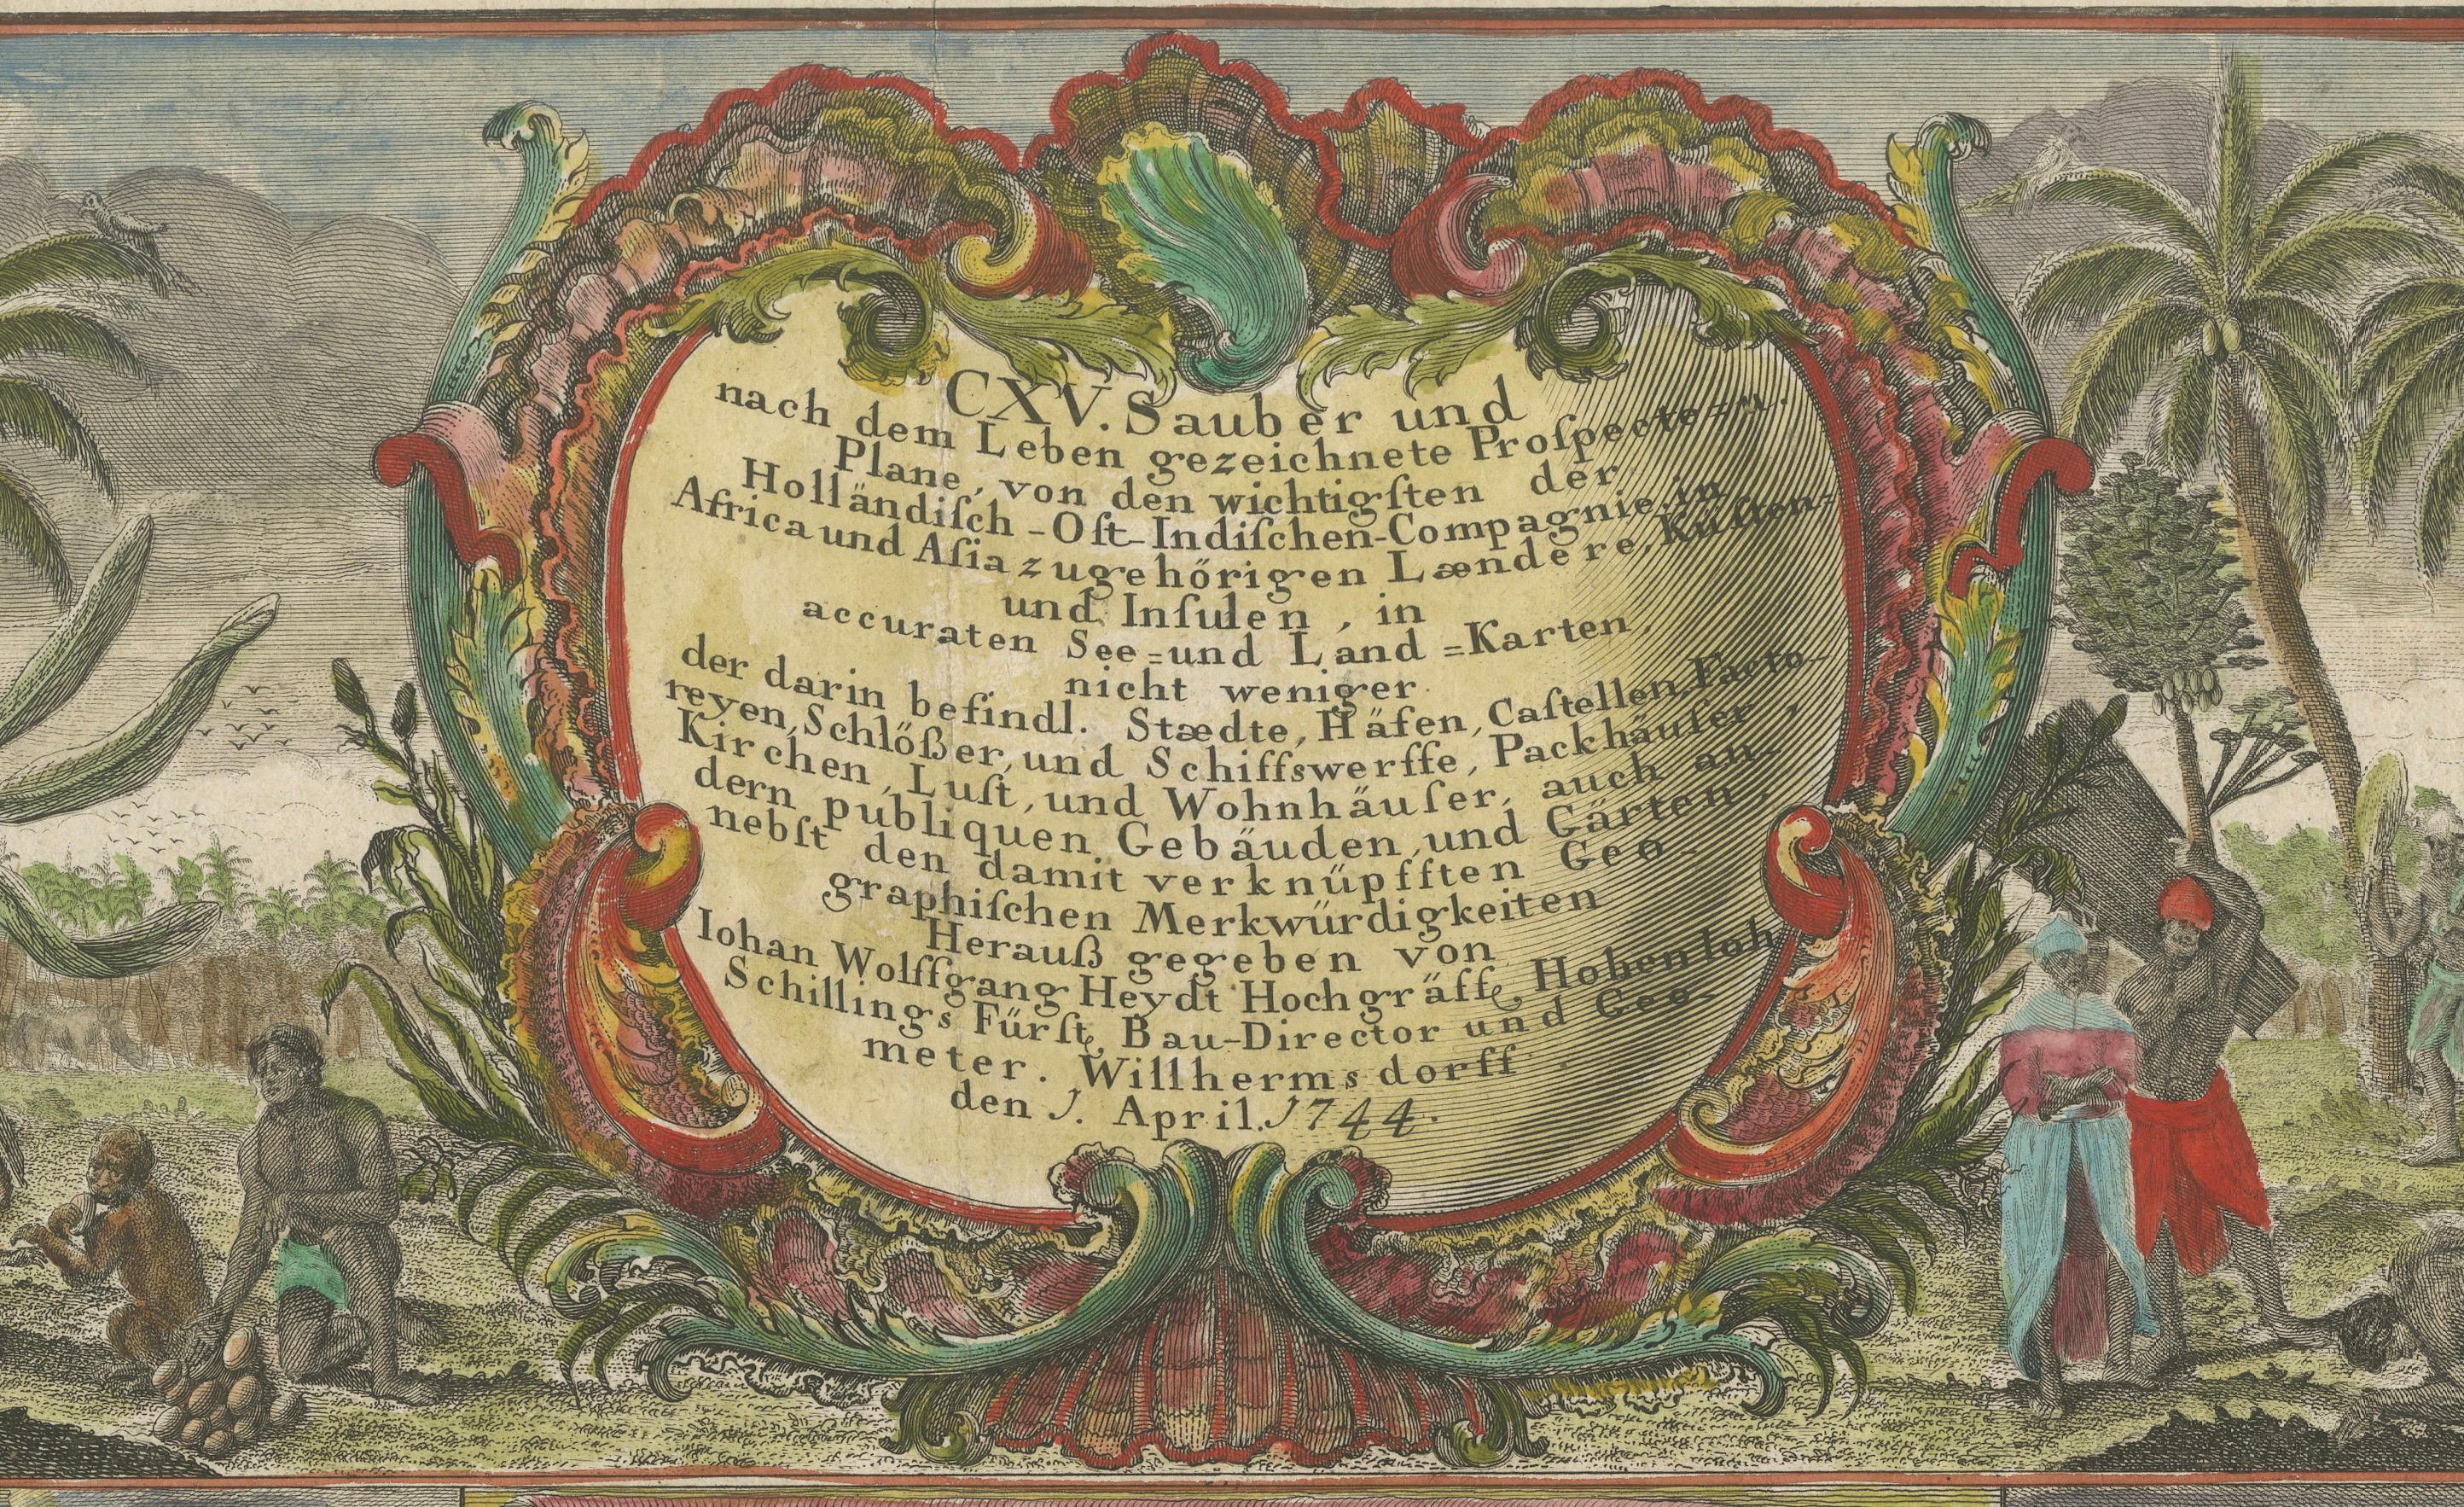 CXV. Sauber und
nach dem Leben gezeichnete Proſpecte=u.
Plane, von den wichtigſten der
Holländiſch-Oſt-Indiſchen-Compagnie, in
Africa und Aſia zugehörigen Lændere, Küſten-
und Inſulen, in
accuraten See=und Land=Karten
nicht weniger
der darin befindl. Stædte, Häfen, Caſtellen, Facto-
reyen, Schlößer, und Schiffswerffe, Packhäuſer,
Kirchen, Luſt, und Wohnhäuſer, auch an-
dern publiquen Gebäuden, und Gärten,
nebſt den damit verknüpfften Geo-
graphiſchen Merkwürdigkeiten
Herauß gegeben von
Iohan Wolffgang Heydt Hochgräffl. Hohenloh
Schillings Fürſtl. Bau-Director und Geo-
meter. Willhermsdorff
den 1. April. 1744.